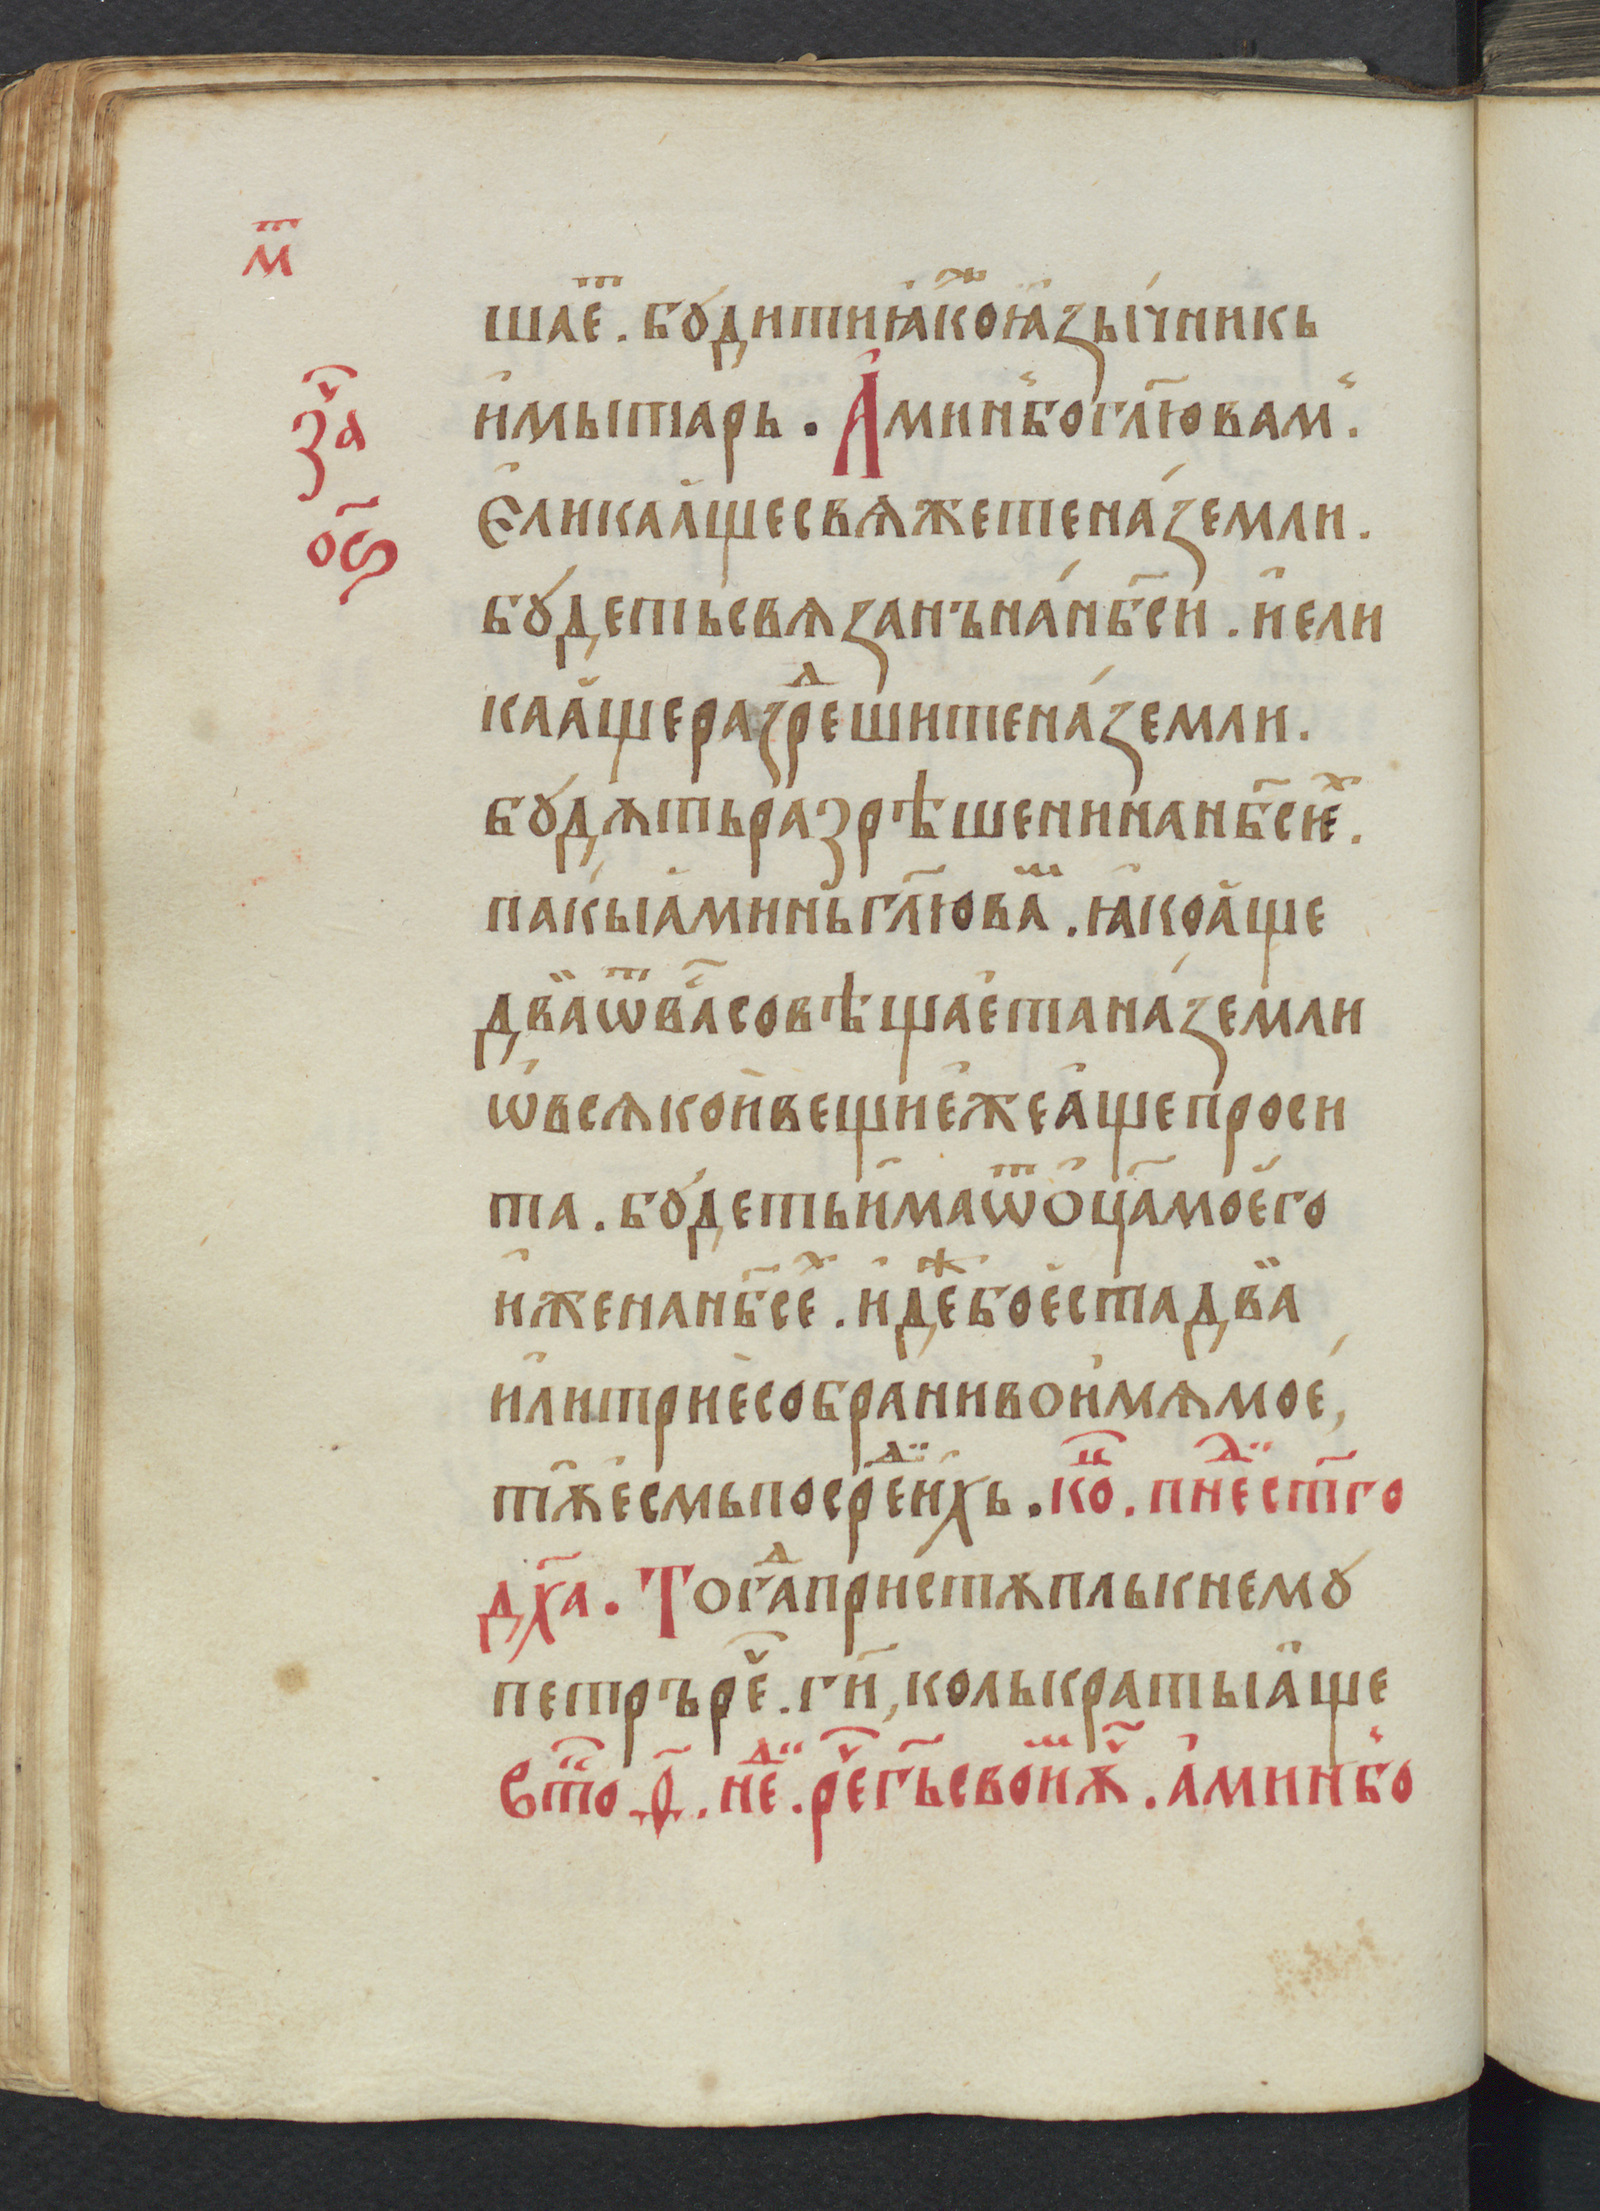 м҃ⷮ
заⷱ҇
ѻ҃ѕ
шаеⷮ. бꙋдитиꙗкоⷤꙗзычникь
имытарь. Аминьбогл҃ювам.
Єликаащесвяжетеназемли.
бꙋдетьсвязанънанб҃си. иели
каащеразреⷲшитеназемли.
бꙋдѫтьразрѣшенинанб҃сиеⷯ.
пакыаминьгл҃юваⷨ. ꙗкоаще
дваѿваⷭ҇совѣщаетаназемли
ѡвсякоивещиежеащепроси
та. бꙋдетьимаѿоц҃амоего
иженанб҃сеⷯ. идеⷤбоестадва
илитриесобранивоимѧмое,
тꙋесмьпосреⷣихь. коⷩ҇. пнеⷣст҃го
дх҃а. Тогаⷣпристѫплькнемꙋ
петръреⷱ҇. ги҃, колькратыаще
Втоⷬ҇. д҃. неⷣ. реⷱ҇гь҃своиⷨꙋⷱ҇. аминьбо